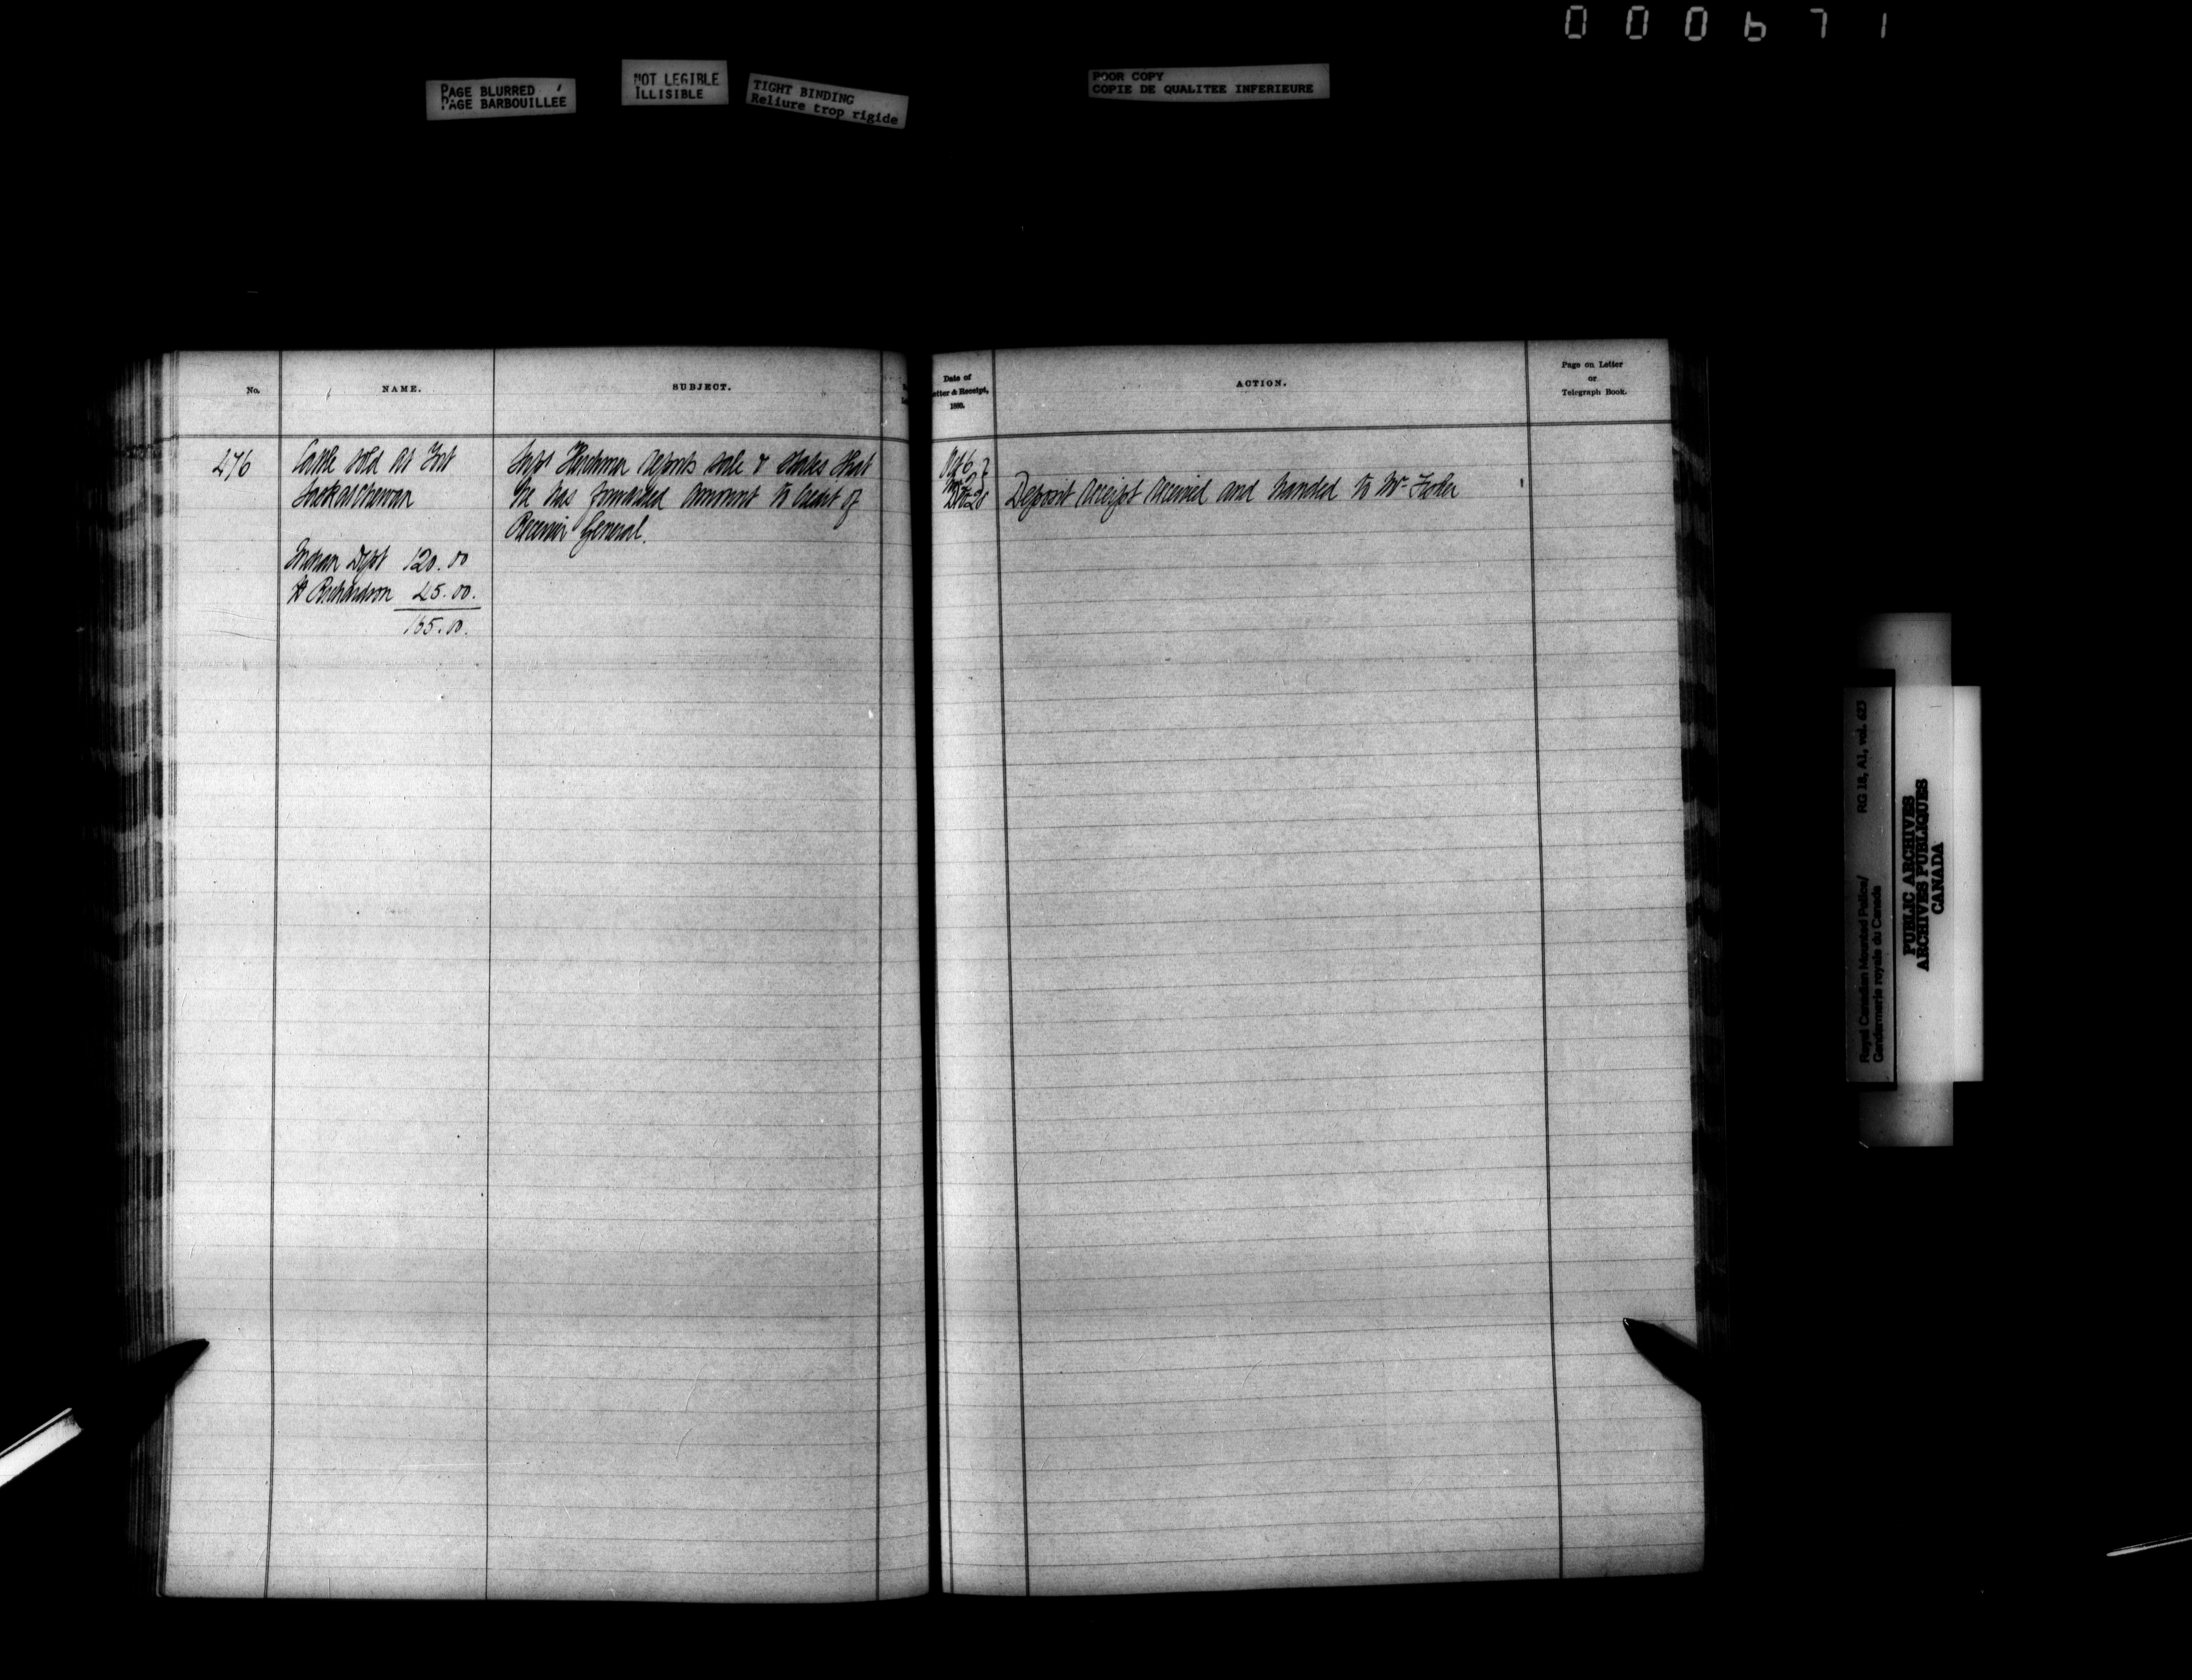 000671
PAGE BLURRED
PAGE BARBOUILLEE
NOT LEGIBLE
ILLISIBLE
TIGHT BINDING
Reliure trop rigide
POOR COPY
COPIE DE QUALITEE INFERIEURE
No.
NAME.
SUBJECT.
476
Cattle sold at Fort
Saskatchewan
Indian Dept 120.00
H Richardson 45.00.
165.00.
Supt Herchmer reports sale & states that
he has forwarded amount to Credit of
Receiver General.
Date of
Letter & Receipt,
1880.
ACTION.
Page on Letter
or
Telegraph Book.
Oct 6
Deposit receipt received and handed to Mr. Fisher
Royal Canadian Mounted Police/
Gendarmerie royale du Canada
RG 18, A1, vol. 623
PUBLIC ARCHIVES
ARCHIVES PUBLIQUES
CANADA